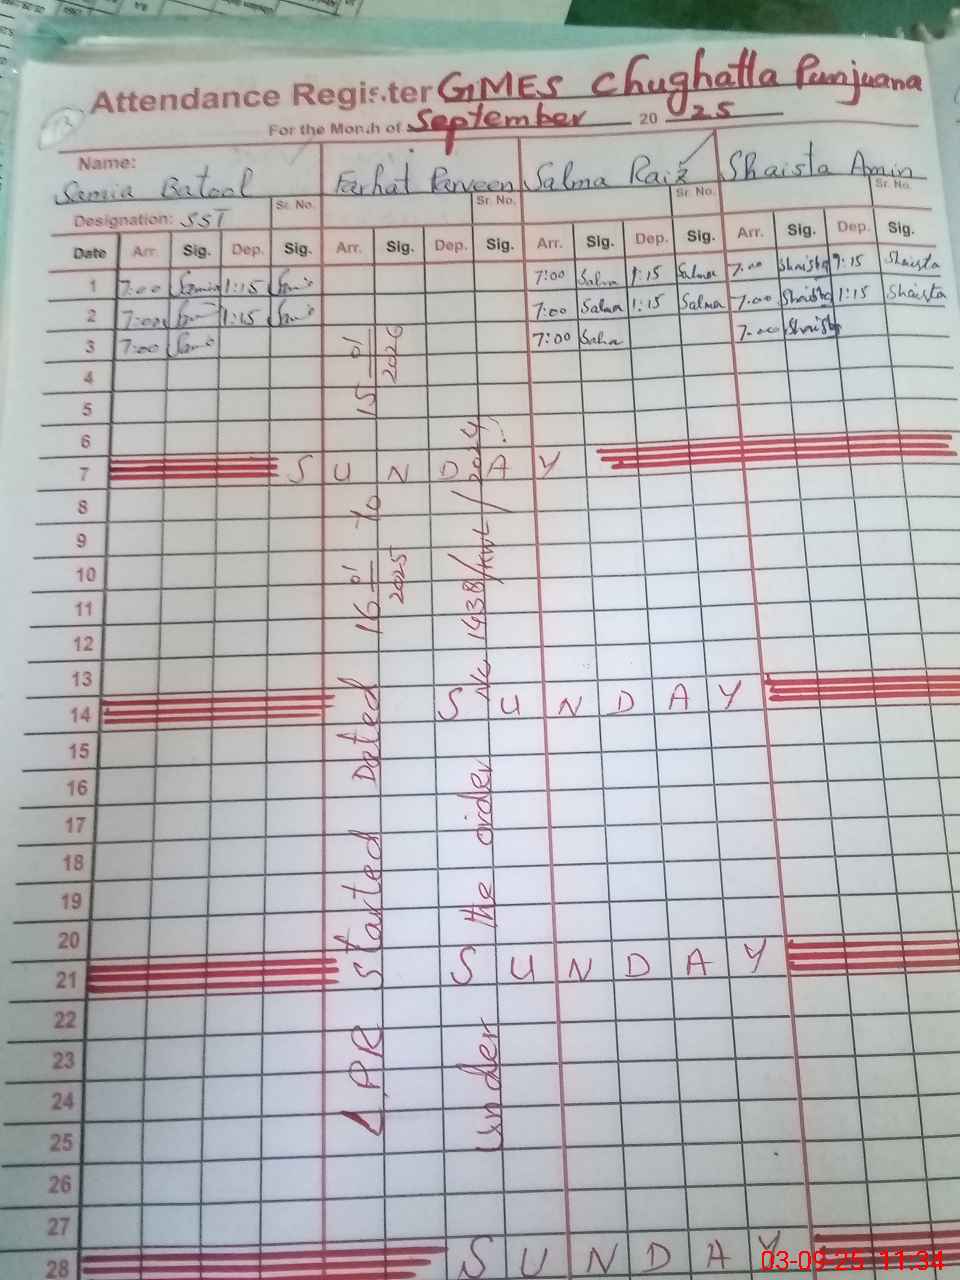 Attendance Register GMES Chughatta Punjuana
For the Month of September 2025
Name:
Samia Batool Farhat Parveen Salma Raiz Shaista Amin
Sr. No. Sr. No. Sr. No. Sr. No.
Designation: SST
Date Arr. Sig. Dep. Sig. Arr. Sig. Dep. Sig. Arr. Sig. Dep. Sig. Arr. Sig. Dep. Sig.
1 7:00 Samia 1:15 7:00 Salma 1:15 Salma 7:00 Shaista 1:15 Shaista
2 7:00 1:15 7:00 Salma 1:15 Salma 7:00 Shaista 1:15 Shaista
3 7:00 7:00 Salma 7:00 Shaista
4
5
6
7 SUNDAY
8
9
10
11
12
13
14 SUNDAY
15
16
17
18
19
20
21 SUNDAY
22
23
24
25
26
27
28 SUNDAY
LPR started Dated 16-01-2025 to 15-01-2026
Under the order No 1438/KWL/2024
03-09-25 11:34